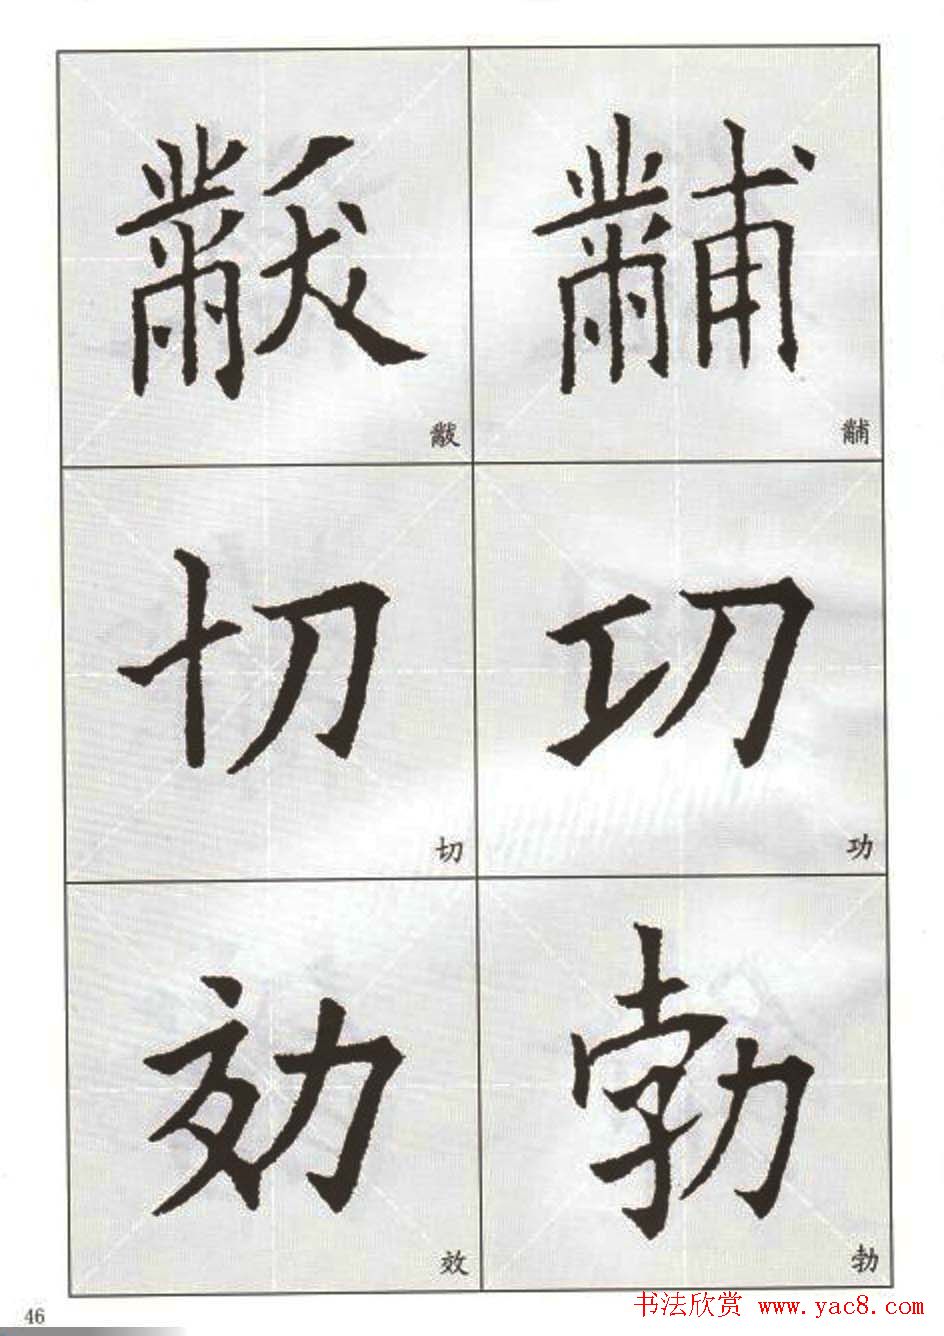 黻 黼
黻 黼
切 功
切 功
効 勃
效 勃
46
书法欣赏 www.yac8.com